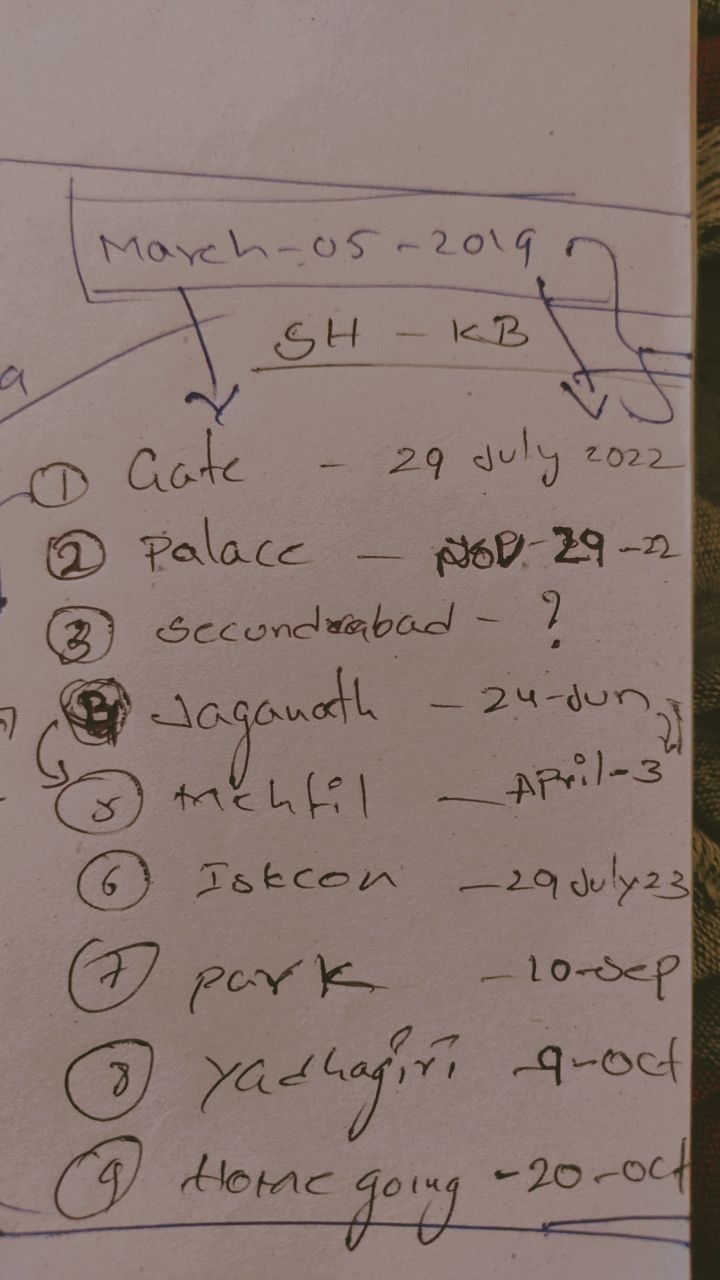 March-05-2019
SH - KB
① Gate - 29 July 2022
② Palace - NOV-29-22
③ Secundrabad - ?
Jaganath - 24-Jun
⑤ Mehfil - April-3
⑥ Iskcon - 29 July 23
⑦ park - 10-Sep
⑧ Yadhagiri - 9-Oct
⑨ Home going - 20-Oct